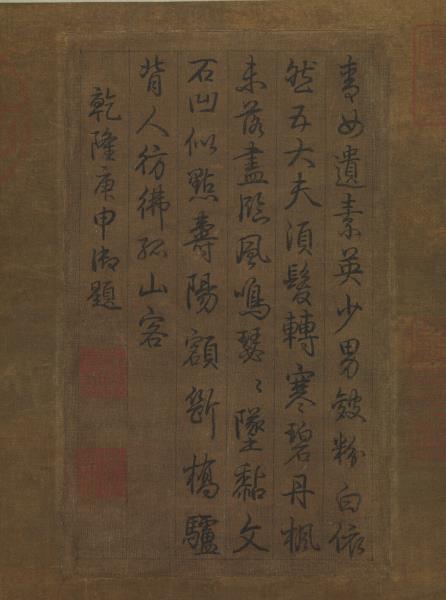 青女遺素英少男皴粉白依
然五大夫須髮轉寒碧丹楓
未落盡臨風鳴瑟〻墜黏文
石凹似點壽陽額斷橋驢
背人彷彿孤山客
乾隆庚申御題